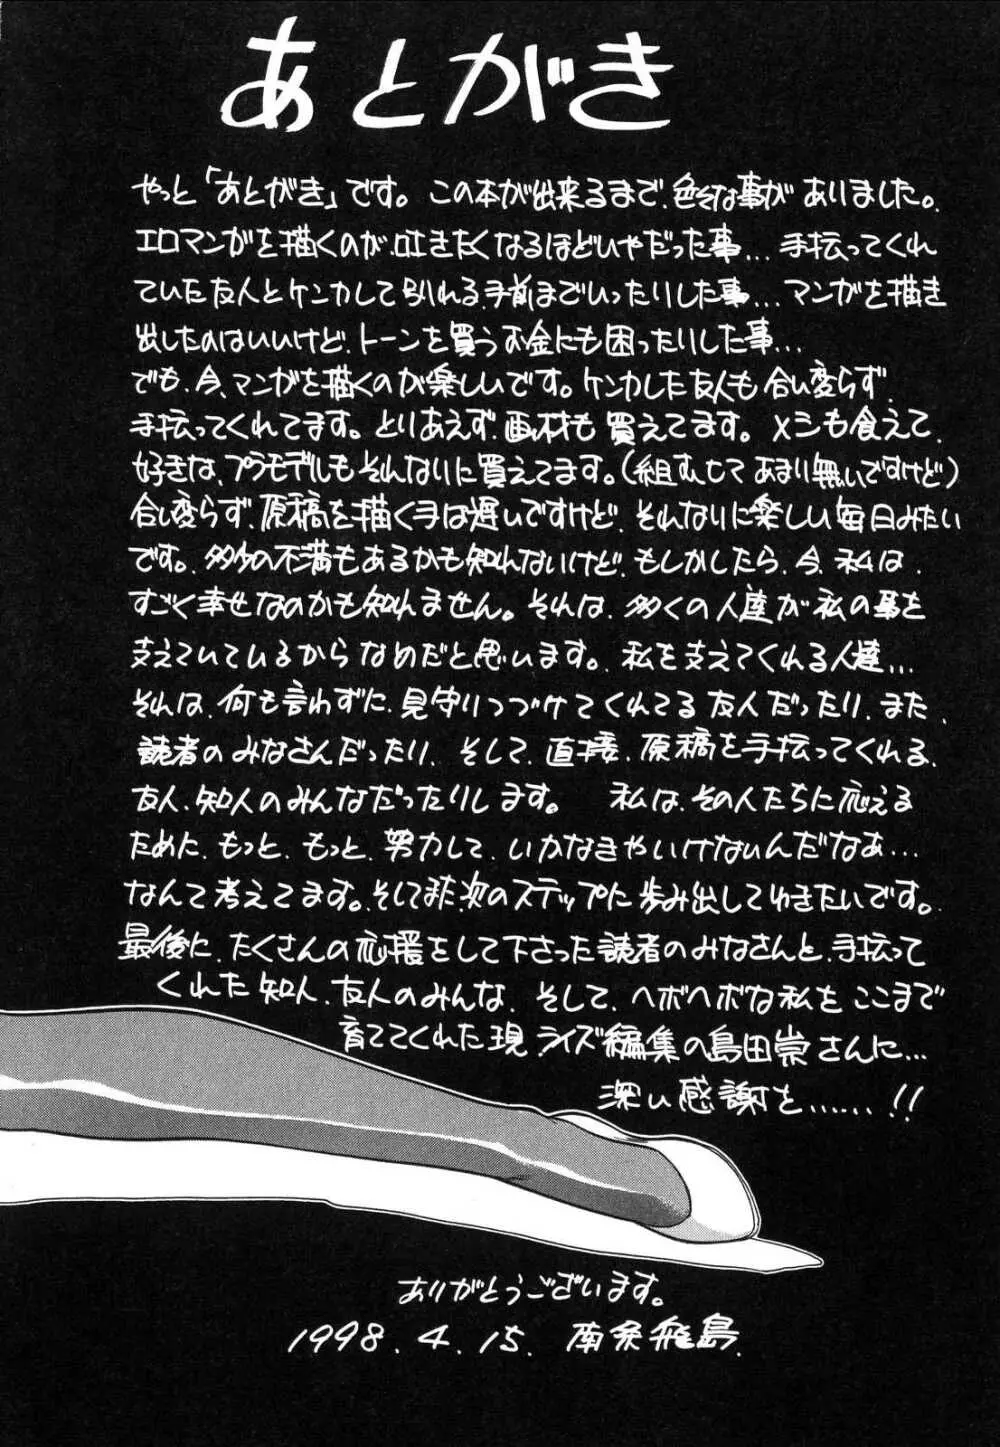 あとがき
やっと「あとがき」です。この本が出来るまで、色々な事がありました。
エロマンガを描くのが、吐きたくなるほどいやだった事…手伝ってくれ
ていた友人とケンカして別れる手前までいったりした事…マンガを描き
出したのはいいけど、トーンを買うお金にも困ったりした事…
でも、今、マンガを描くのが楽しいです。ケンカした友人も合い変らず、
手伝ってくれてます。とりあえず、画材も買えてます。メシも食えて、
好きな、プラモデルもそれなりに買えてます。(組むヒマあまり無いですけど)
合い変らず、原稿を描く手は遅いですけど、それなりに楽しい毎日みたい
です。多々の不満もあるかも知れないけど、もしかしたら、今、私は、
すごく幸せなのかも知れません。それは、多くの人達が私の事を
支えていているからなめだと思います。私を支えてくれる人達…
それは、何も言わずに、見守りつづけてくれてる友人だったり、また、
読者のみなさんだったり、そして、直接、原稿を手伝ってくれる、
友人、知人のみんなだったりします。私は、その人たちに応える
ために、もっと、もっと、努力して、いかなきゃいけないんだなぁ…
なんて考えてます。そしてまた、次のステップに歩み出してゆきたいです。
最後に、たくさんの応援をして下さった読者のみなさんと、手伝って
くれた知人、友人のみんな、そして、ヘボヘボな私をここまで
育ててくれた現ライズ編集の島田崇さんに…
深い感謝を……!!
ありがとうございます。
1998.4.15. 南条飛鳥.